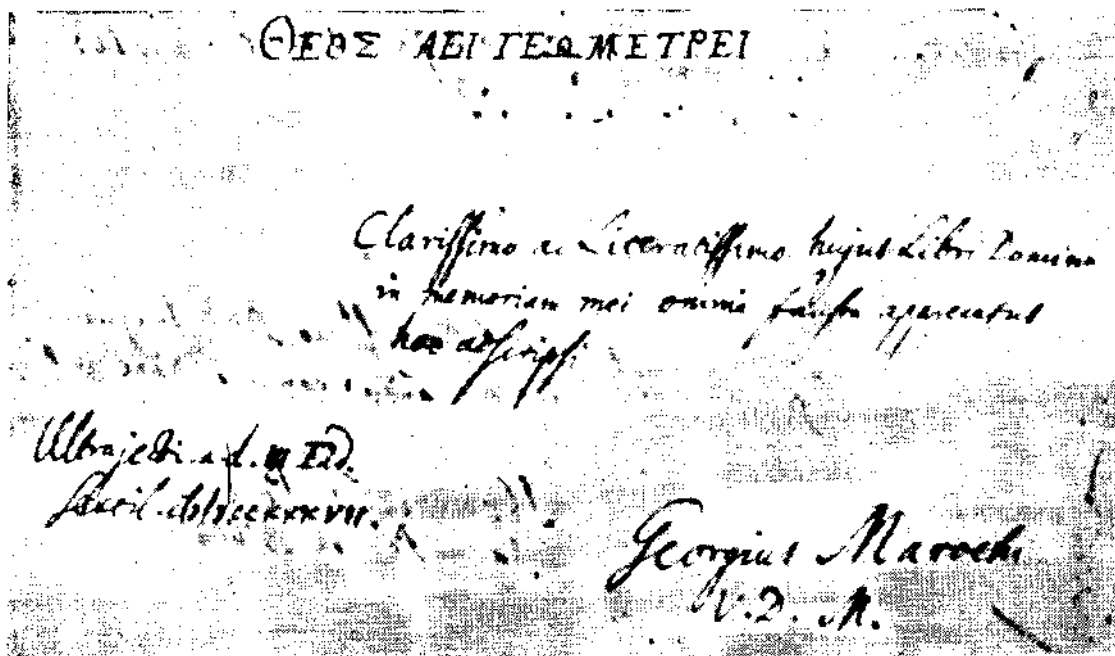 ΘΕΟΣ ΑΕΙ ΓΕΩΜΕΤΡΕΙ
Clarissimo ac Literatissimo hujus Libri Domino
in memoriam mei omnia fausta apprecatus
hæc adscripsi
Ultrajecti a. d.
Georgius Marochi
V. D. M.